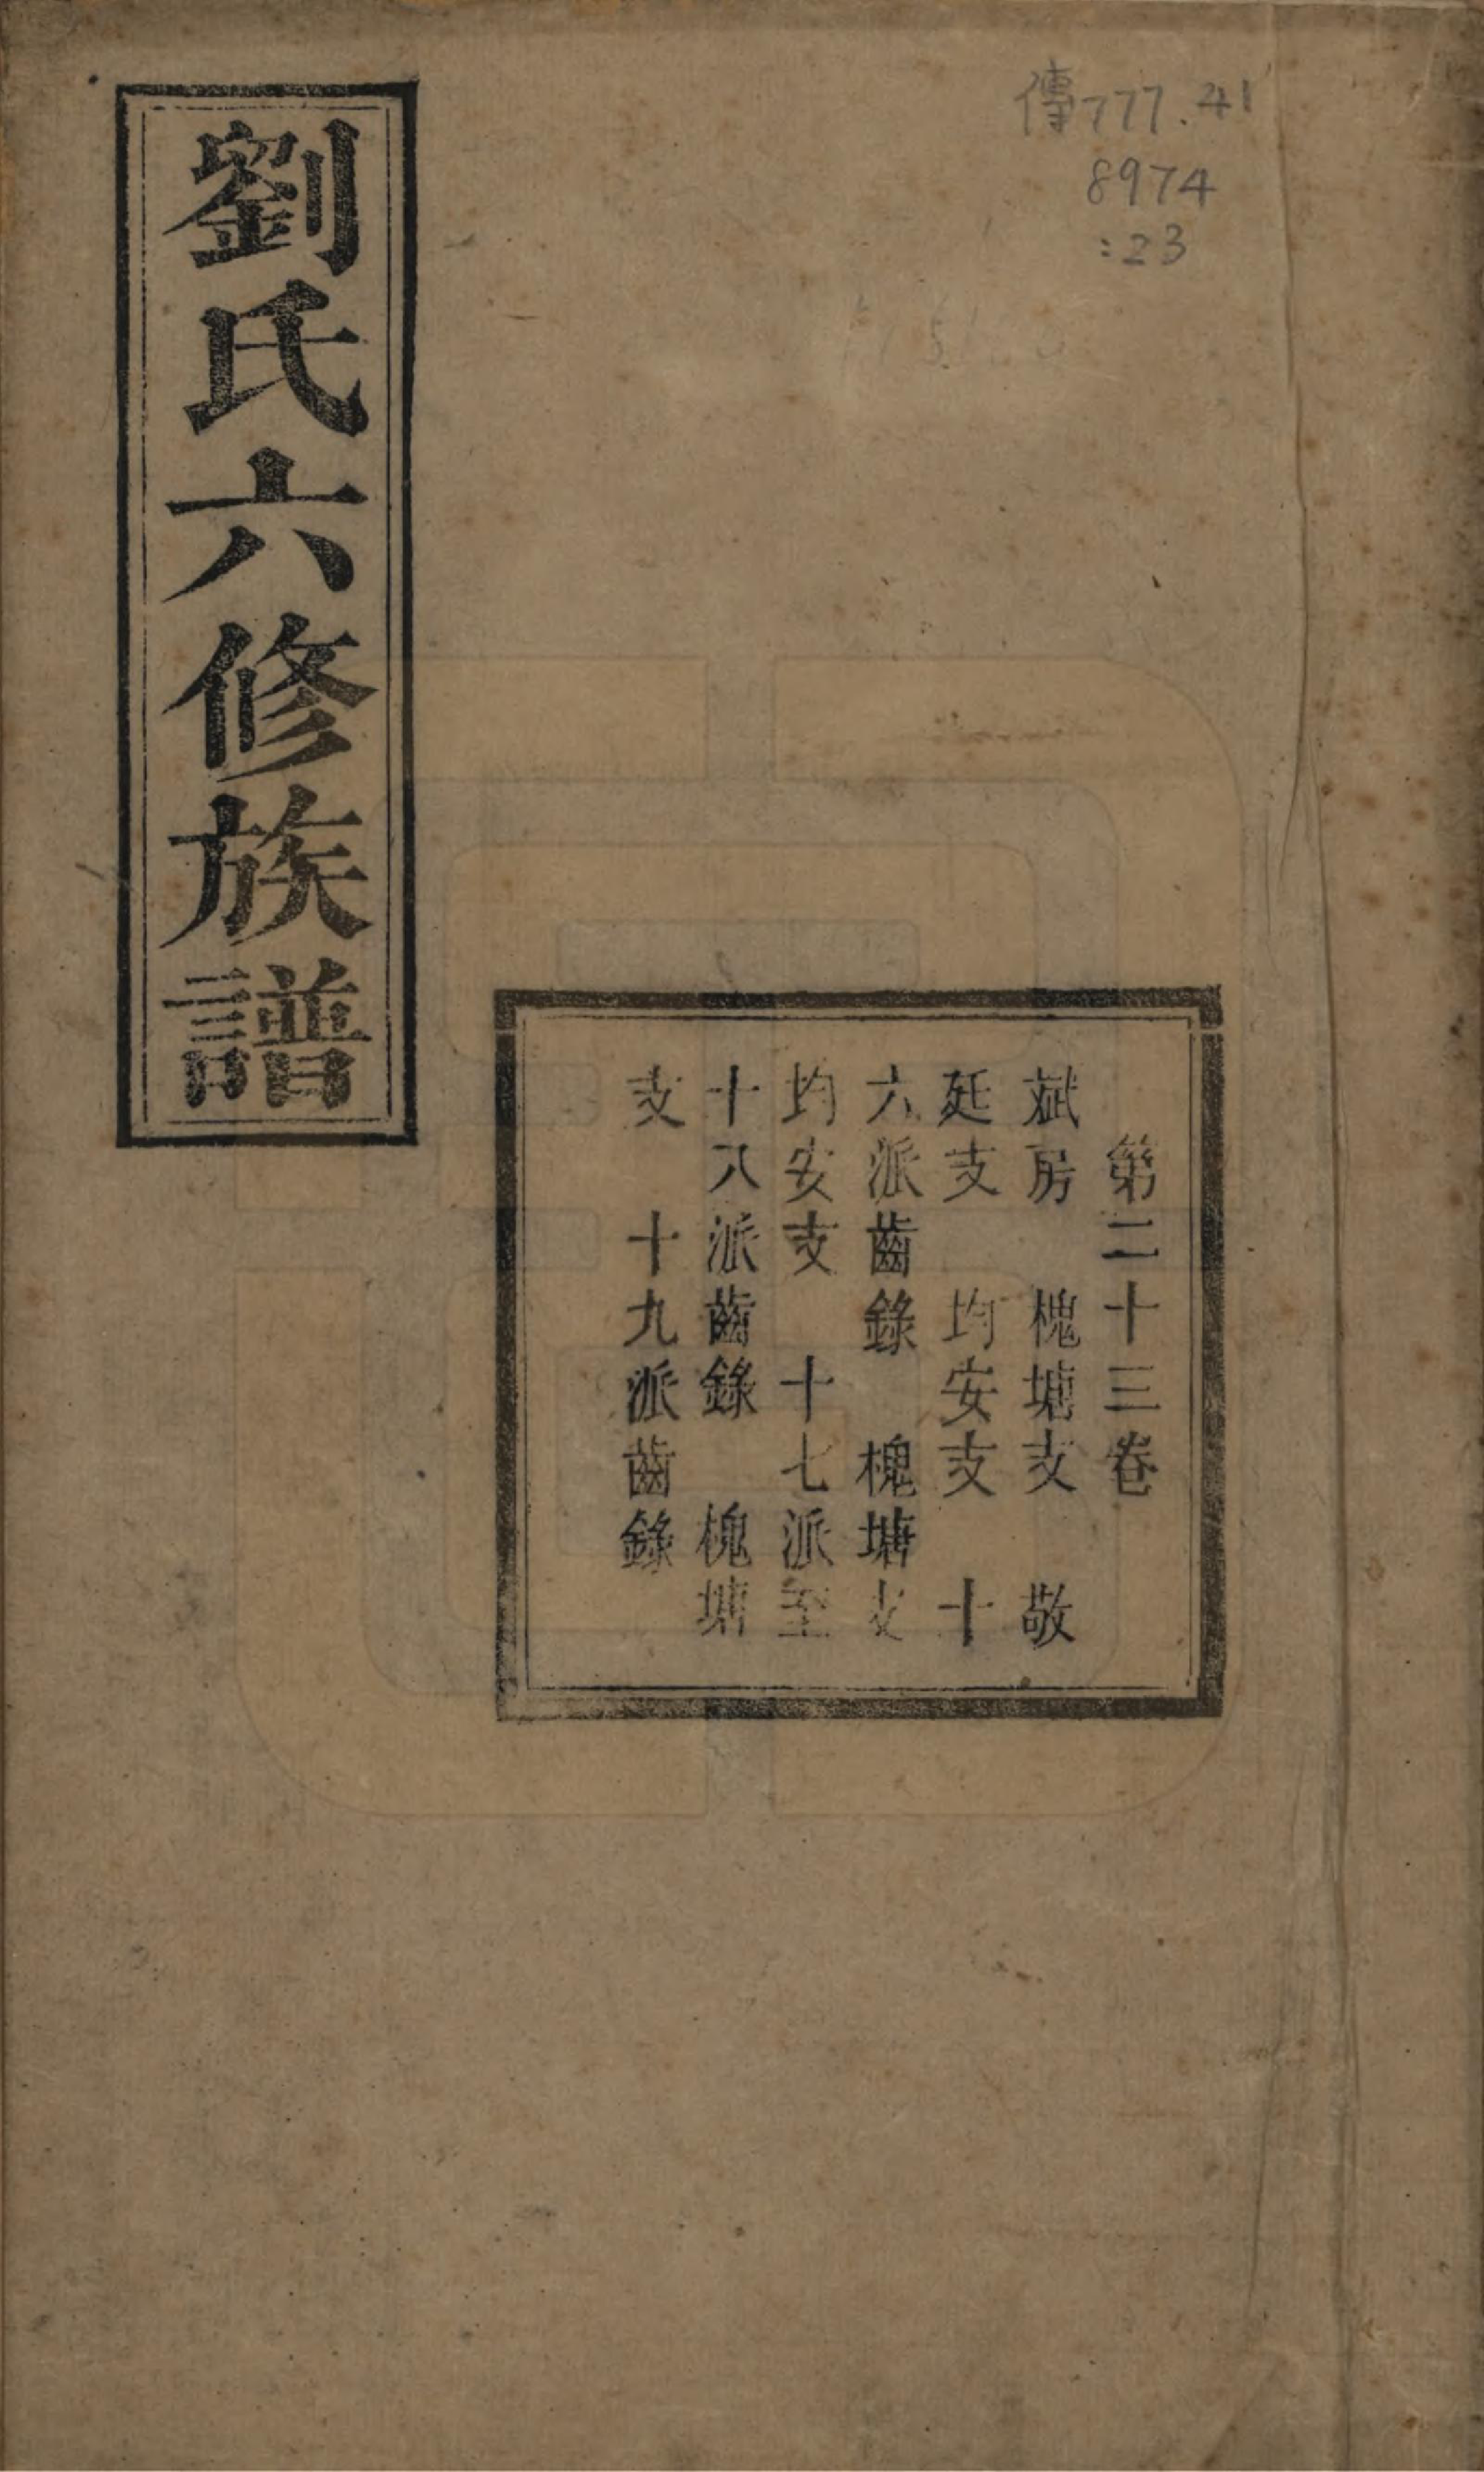 傳777.41
8974
:23
劉氏六修族譜
第二十三卷
斌房 槐塘支 敬
延支 均安支 十
六派齒錄 槐塘支
均安支 十七派至
十八派齒錄 槐塘
支 十九派齒錄